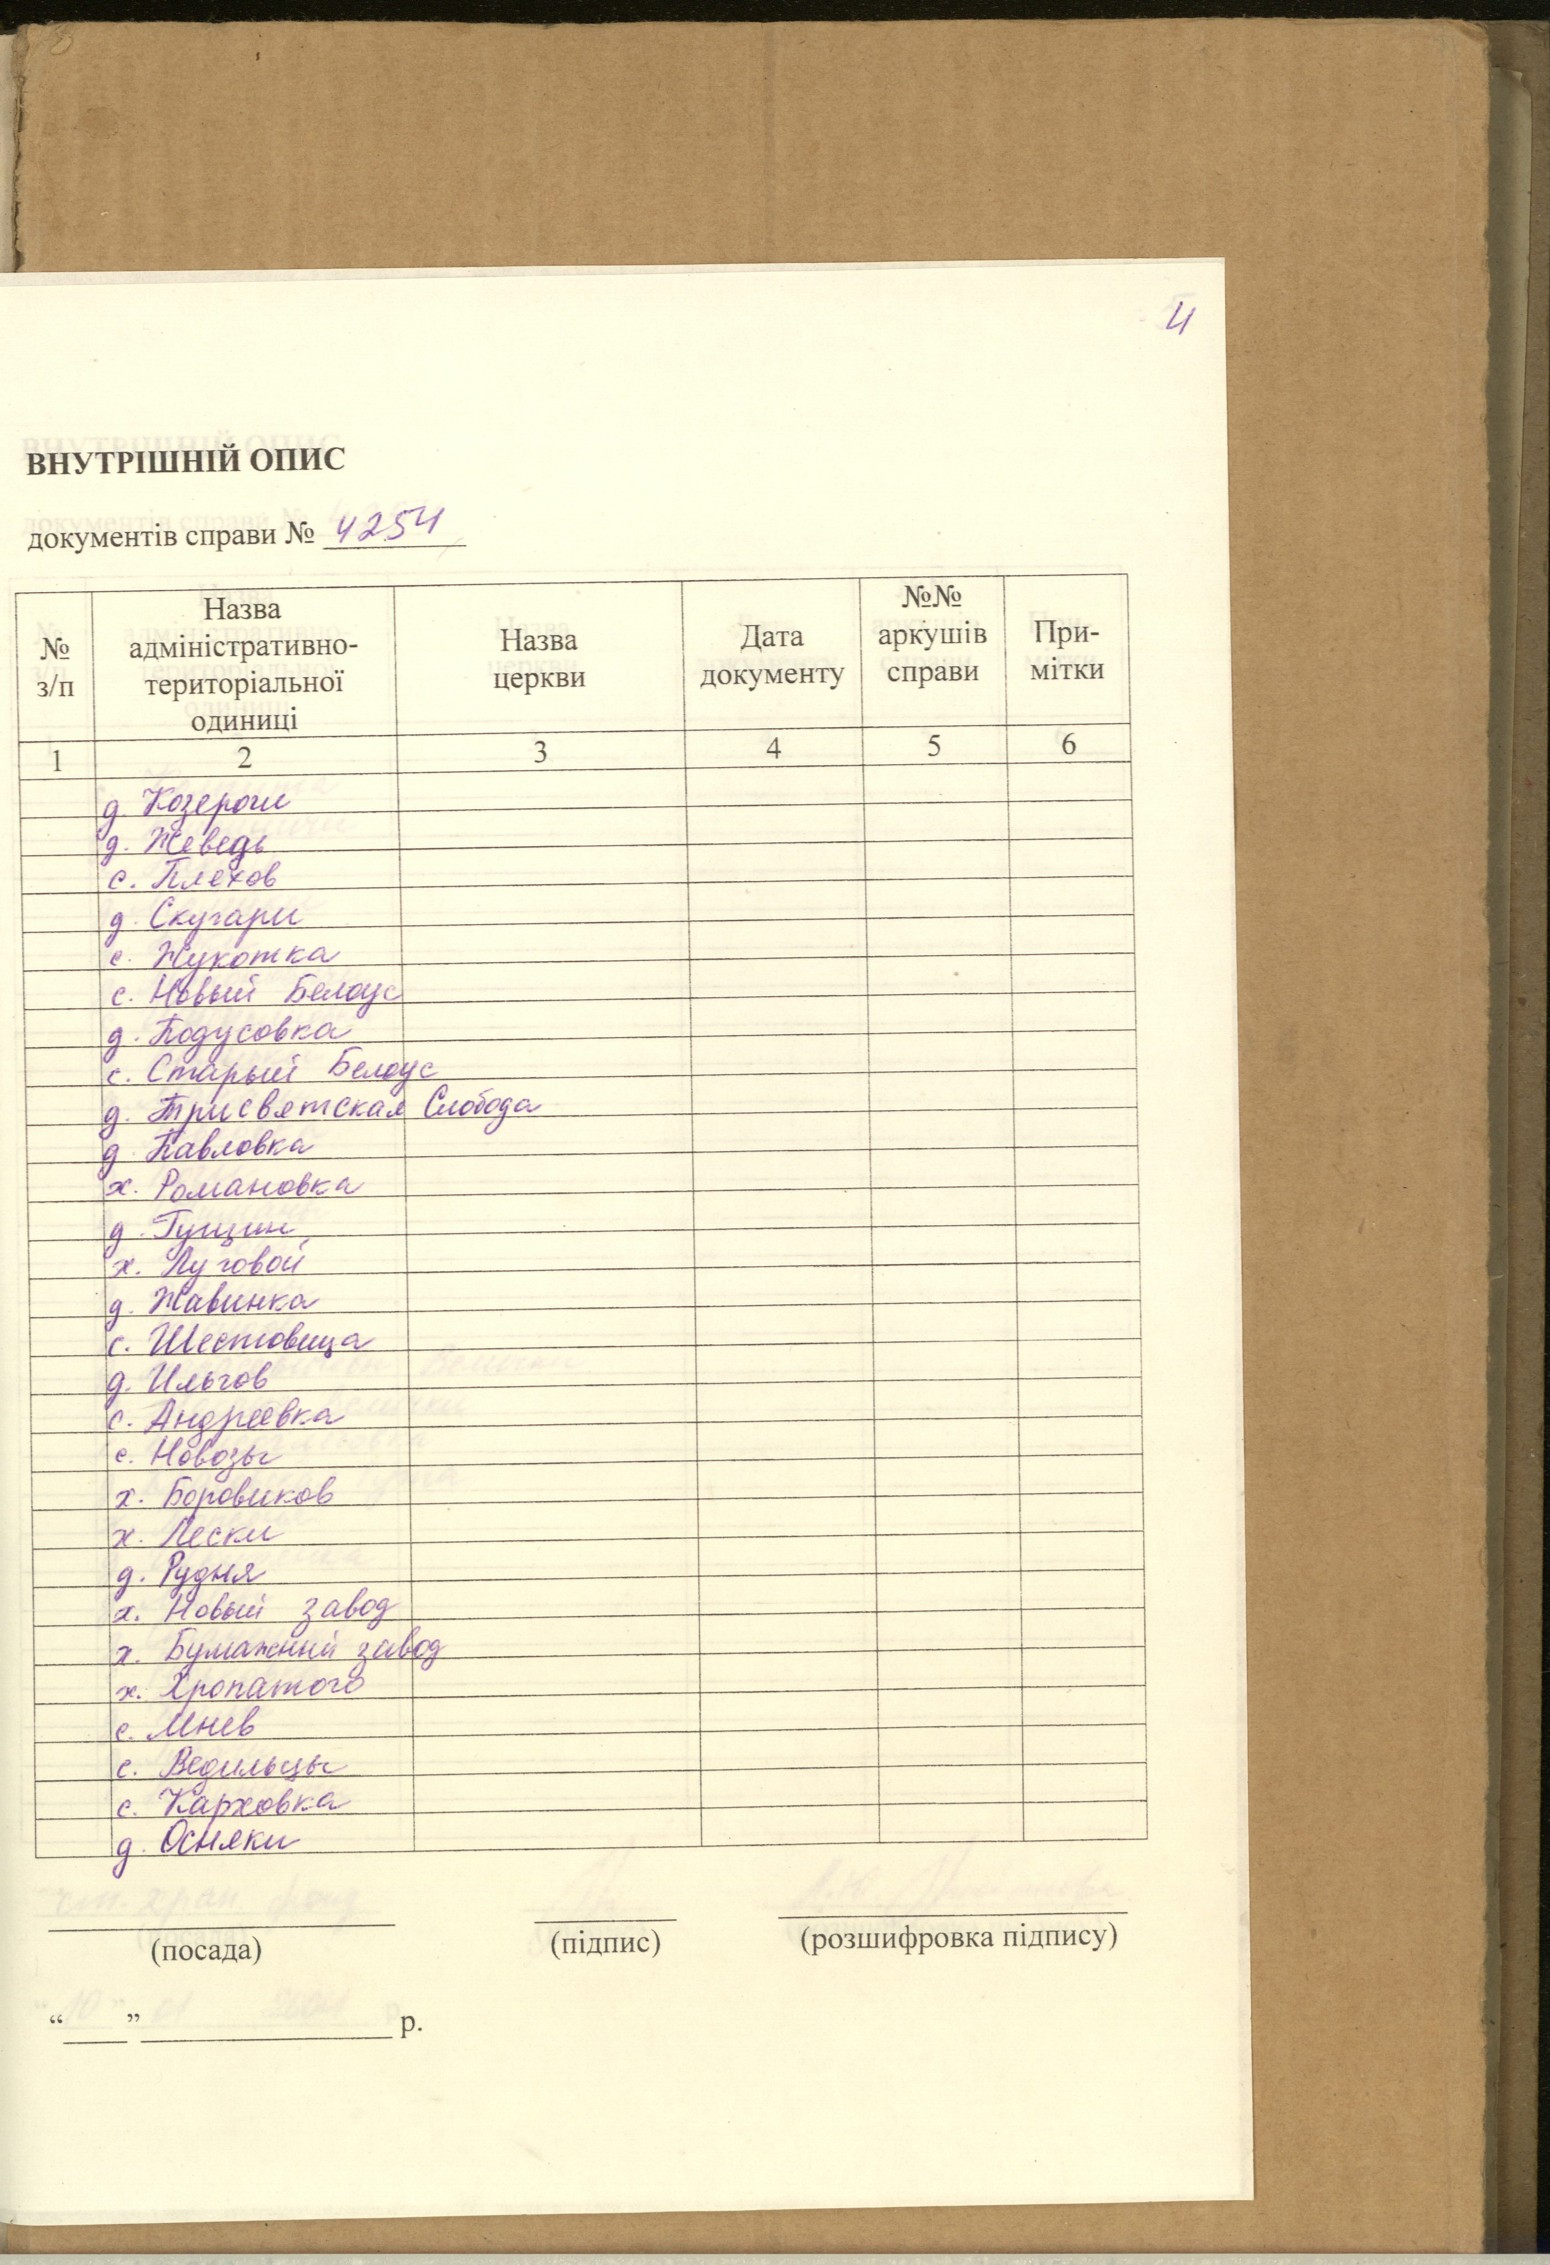 4
ВНУТРІШНІЙ ОПИС
документів справи № 4254
№ з/п
Назва адміністративно-територіальної одиниці
Назва церкви
Дата документу
№№ аркушів справи
При-мітки
1 2 3 4 5 6
д. Козероги
д. Жеведь
с. Плехов
д. Скугари
с. Жукотка
с. Новый Белоус
д. Подусовка
с. Старый Белоус
д. Трисвятская Слобода
д. Павловка
х. Романовка
д. Гущин
х. Луговой
д. Жавинка
с. Шестовица
д. Ильгов
с. Андреевка
с. Новозы
х. Боровиков
х. Лески
д. Рудня
х. Новый завод
х. Бумажний завод
х. Хропатого
с. Мнев
с. Ведильцы
с. Карховка
д. Осняки
(посада) (підпис) (розшифровка підпису)
“____”________________ р.